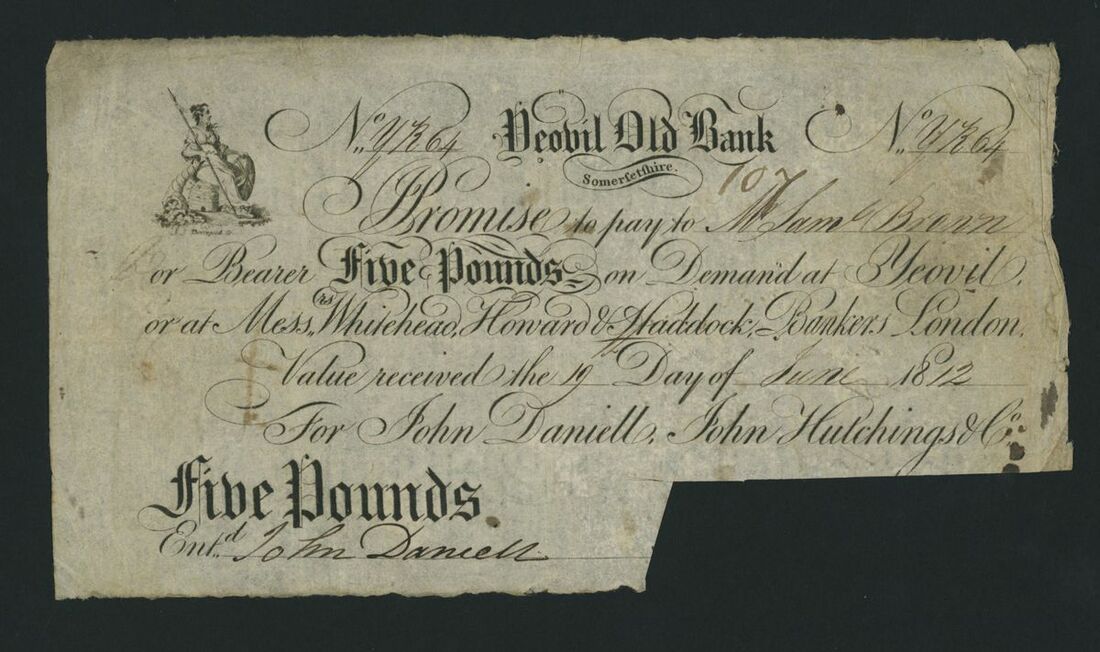 No. YK64 Yeovil Old Bank No. YK64
Somersetshire. 107
I Promise to pay to Mr Saml Brown
or Bearer Five Pounds on Demand at Yeovil.
or at Messrs. Whitehead, Howard & Haddock, Bankers London.
Value received the 19 Day of June 1812
For John Daniell, John Hutchings & Co.
Five Pounds
Entd. John Daniell